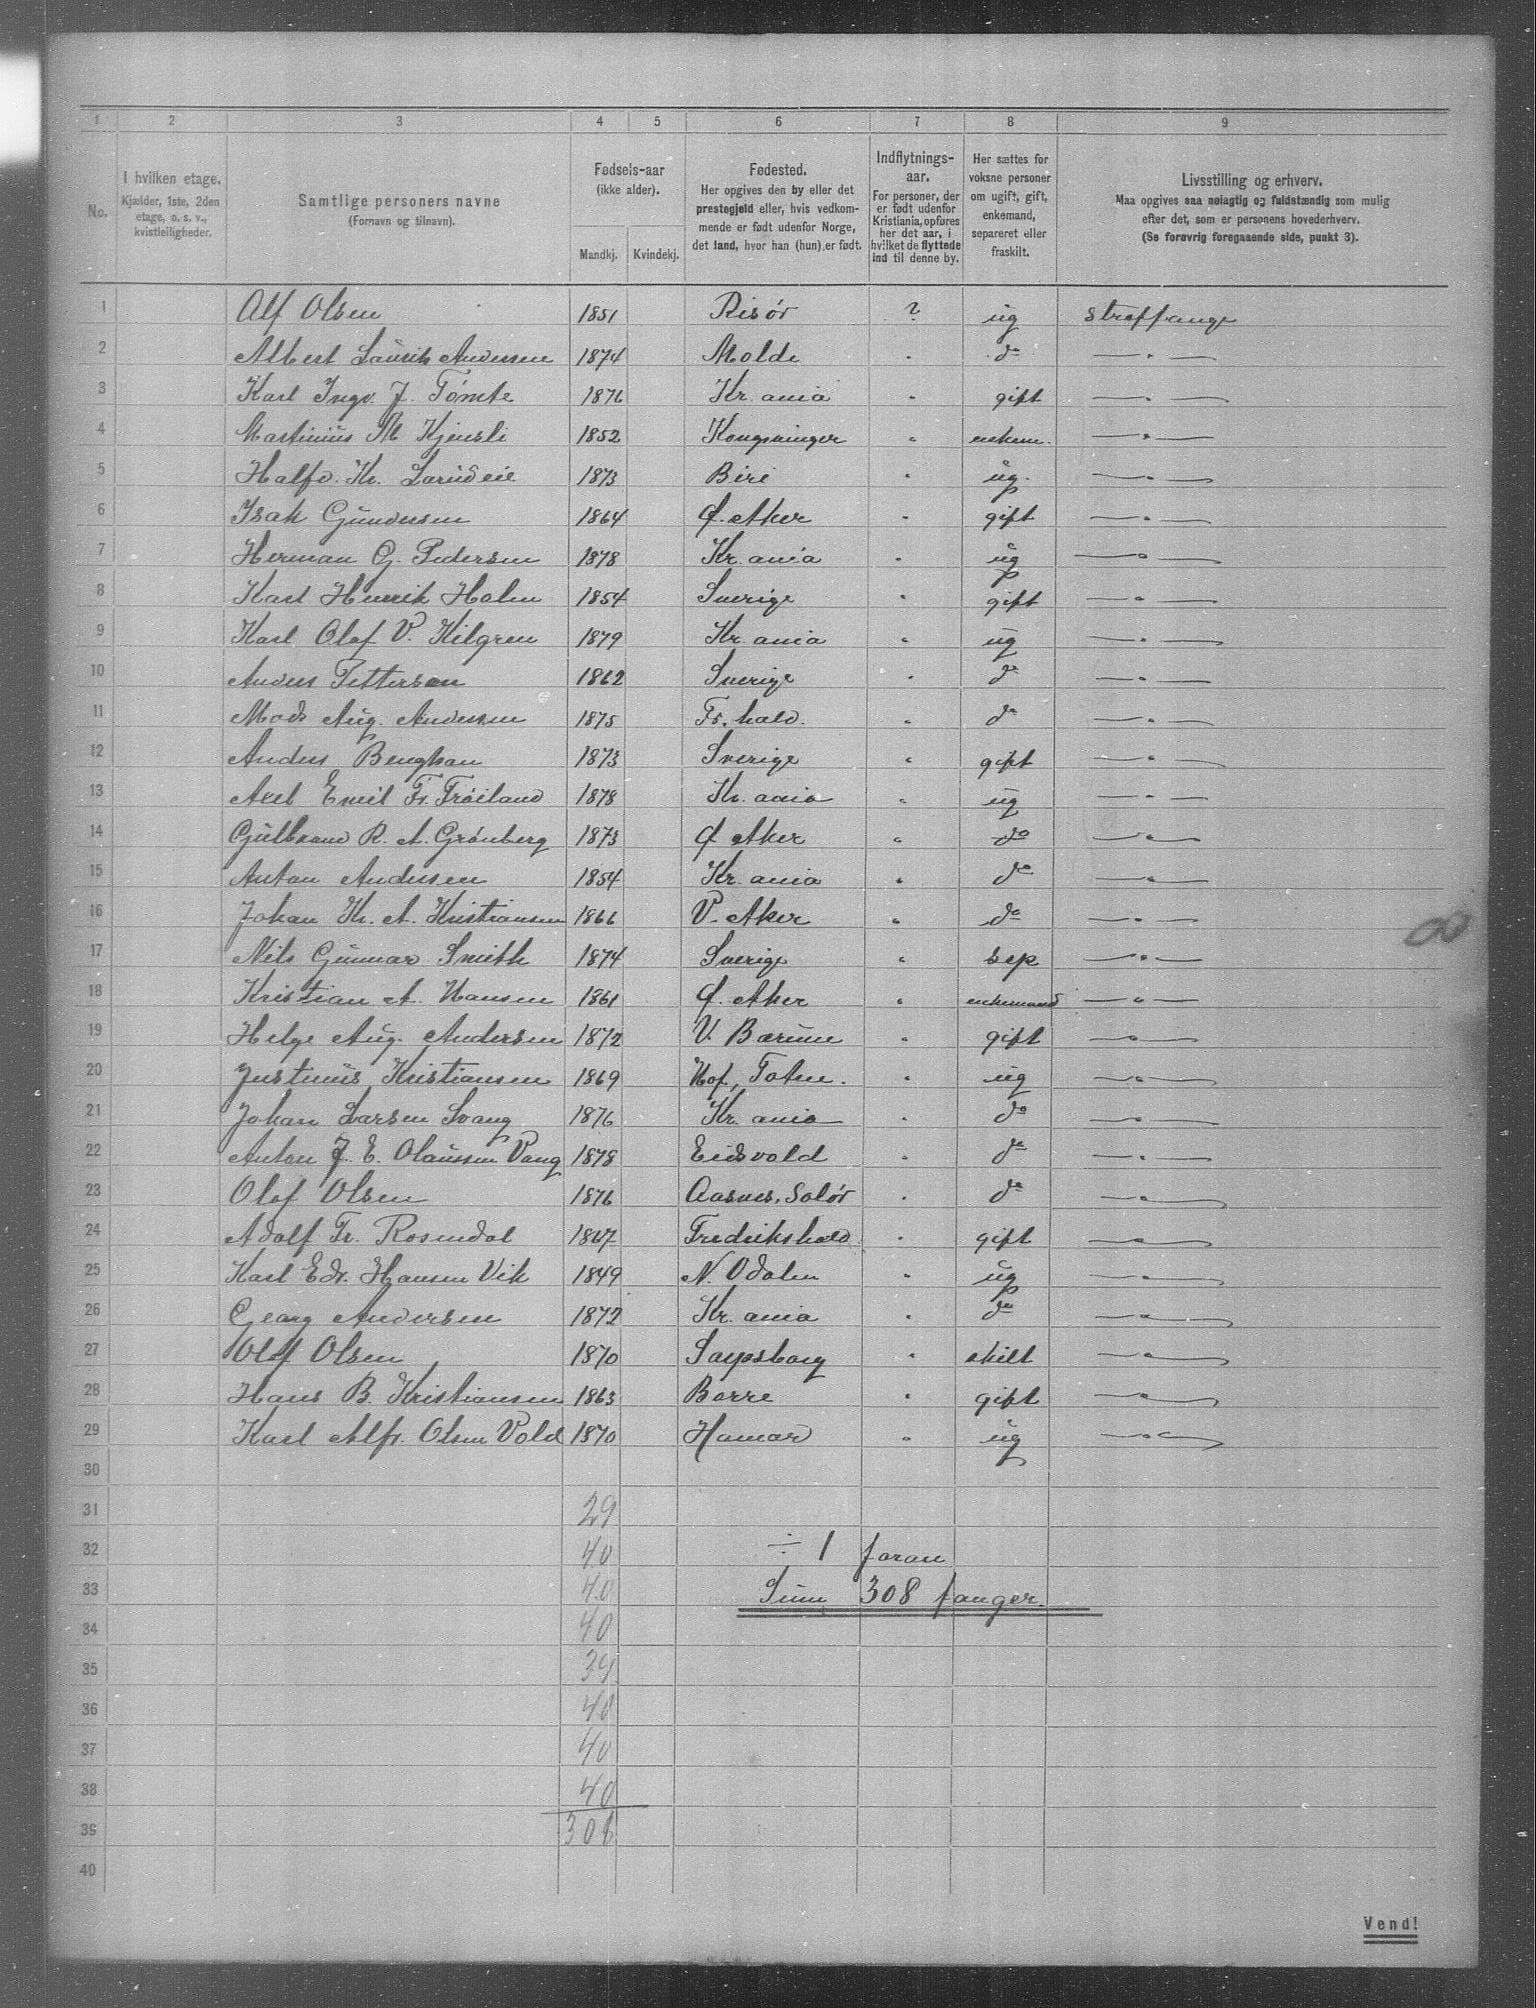 1 2 3 4 5 6 7 8 9
No.
I hvilken etage.
Kjælder, 1ste, 2den
etage, o. s. v.,
kvistleiligheder.
Samtlige personers navne
(Fornavn og tilnavn).
Fødsels-aar
(ikke alder).
Mandkj. Kvindekj.
Fødested.
Her opgives den by eller det
prestegjeld eller, hvis vedkom-
mende er født udenfor Norge,
det land, hvor han (hun) er født.
Indflytnings-
aar.
For personer, der
er født udenfor
Kristiania, opføres
her det aar, i
hvilket de flyttede
ind til denne by.
Her sættes for
voksne personer
om ugift, gift,
enkemand,
separeret eller
fraskilt.
Livsstilling og erhverv.
Maa opgives saa nøiagtig og fuldstændig som mulig
efter det, som er personens hovederhverv.
(Se forøvrig foregaaende side, punkt 3).
1 Alf Olsen 1851 Risør ? ug straffange
2 Albert Laurits Andersen 1874 Molde " do — " —
3 Karl Ingv. J. Tømte 1876 Kr. ania " gift — " —
4 Martinius M Kjensli 1852 Kongsvinger " enkem. — " —
5 Halfd. Kr. 1873 Biri " ug. — " —
6 Isak Gundersen 1864 Ø. Aker " gift — " —
7 Herman G. Pedersen 1878 Kr. ania " ug — " —
8 Karl Henrik Holm 1854 Sverige " gift — " —
9 Karl Olaf V. Kilgren 1879 Kr. ania " ug — " —
10 Anders Petterson 1862 Sverige " do — " —
11 Mads Aug. Andersen 1875 Fr. hald. " do — " —
12 Anders Bengtson 1873 Sverige " gift — " —
13 Axel Emil Fr. Frøiland 1878 Kr. ania " ug — " —
14 Gulbrand R. A. Grønberg 1873 Ø Aker " do — " —
15 Anton Andersen 1854 Kr. ania " do — " —
16 Johan Kr. A. Kristiansen 1866 V. Aker " do — " —
17 Nils Gunnar Smith 1874 Sverige " sep — " —
18 Kristian A. Hansen 1861 Ø. Aker " enkemand — " —
19 Helge Aug. Andersen 1872 V. Bærum " gift — " —
20 Justinius Kristiansen 1869 Hof, Toten. " ug — " —
21 Johan Larsen Svang 1876 Kr. ania " do — " —
22 Anton J. E. Olaussen Vang 1878 Eidsvold " do — " —
23 Olaf Olsen 1876 Aasnes, Solør " do — " —
24 Adolf Fr. Rosendal 1867 Fredrikshald " gift — " —
25 Karl Edv. Hansen Vik 1849 N. Odalen " ug — " —
26 Georg Andersen 1872 Kr. ania " do — " —
27 Olaf Olsen 1870 Sarpsborg " skilt — " —
28 Hans B. Kristiansen 1863 Borre " gift — " —
29 Karl Alfr. Olsen Vold 1870 Hamar " ug — " —
30
31 29
32 40 ÷ 1 foran
33 40 Sum 308 fanger.
34 40
35 39
36 40
37 40
38 40
39 308
40
Vend!